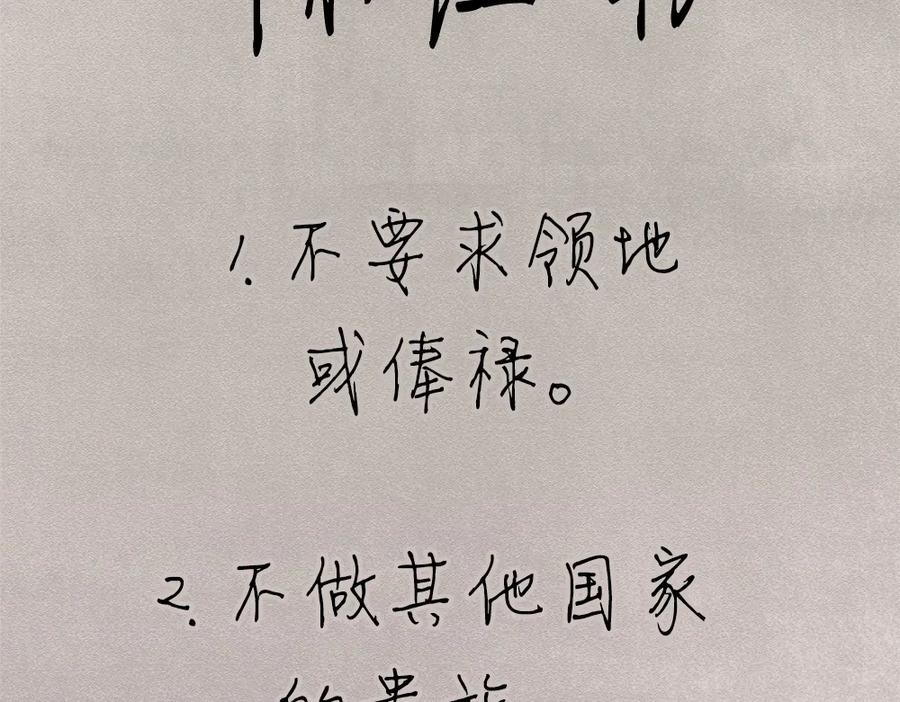 1. 不要求领地
或俸禄。
2. 不做其他国家
的贵族